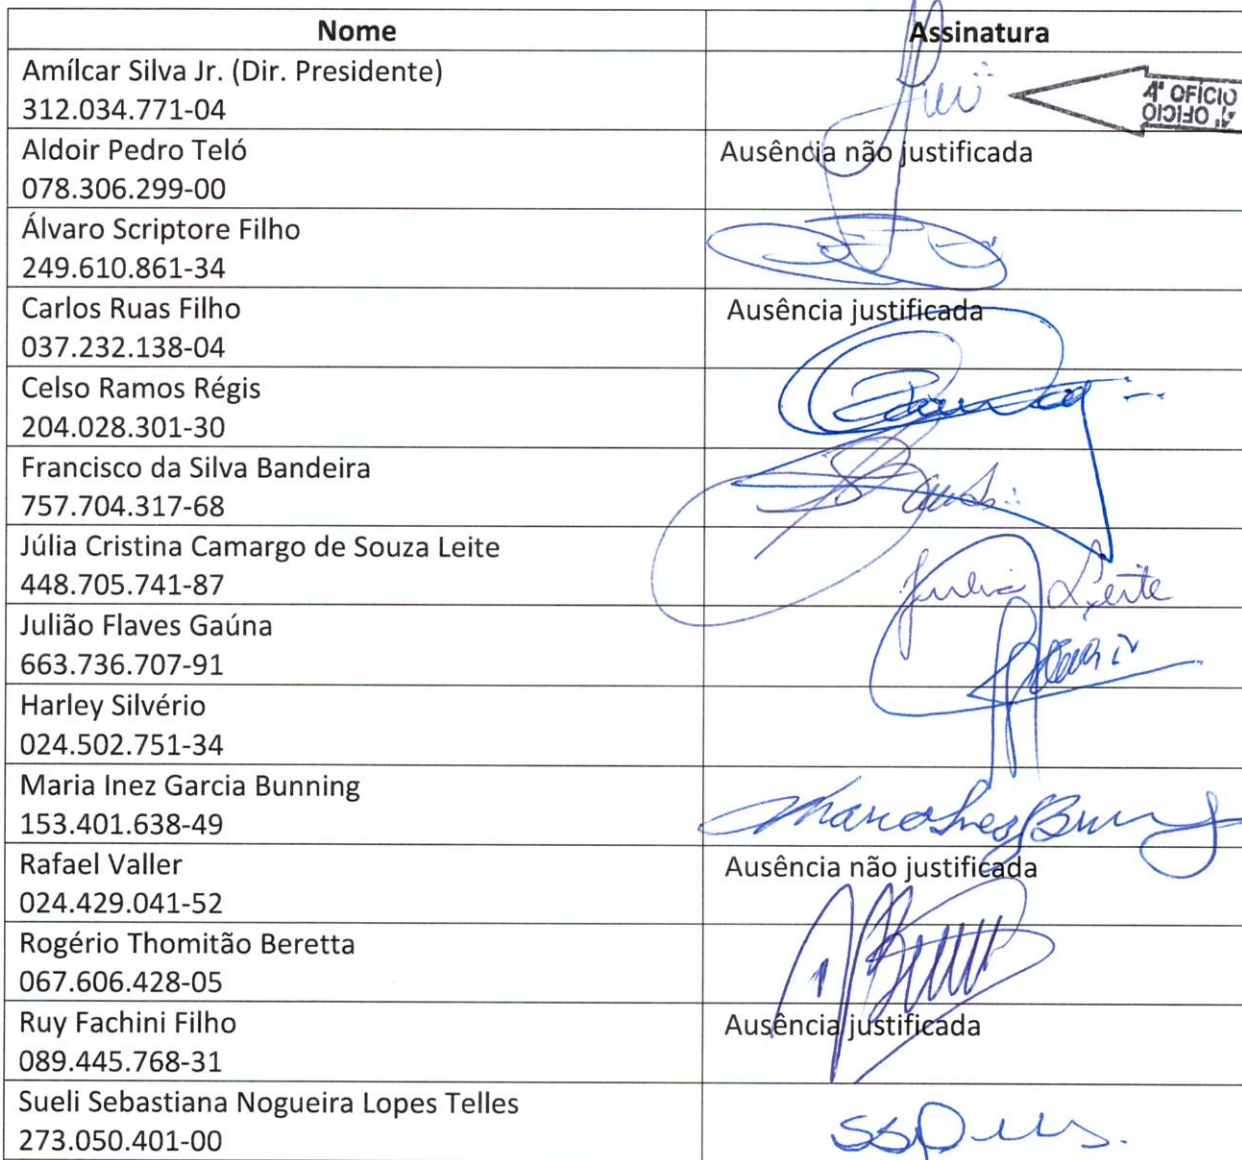 Nome Assinatura
Amílcar Silva Jr. (Dir. Presidente)
312.034.771-04
4º OFÍCIO
4º OFÍCIO
Aldoir Pedro Teló Ausência não justificada
078.306.299-00
Álvaro Scriptore Filho
249.610.861-34
Carlos Ruas Filho Ausência justificada
037.232.138-04
Celso Ramos Régis
204.028.301-30
Francisco da Silva Bandeira
757.704.317-68
Júlia Cristina Camargo de Souza Leite
448.705.741-87
Julia Leite
Julião Flaves Gaúna
663.736.707-91
Harley Silvério
024.502.751-34
Maria Inez Garcia Bunning
153.401.638-49
Rafael Valler Ausência não justificada
024.429.041-52
Rogério Thomitão Beretta
067.606.428-05
Ruy Fachini Filho Ausência justificada
089.445.768-31
Sueli Sebastiana Nogueira Lopes Telles
273.050.401-00